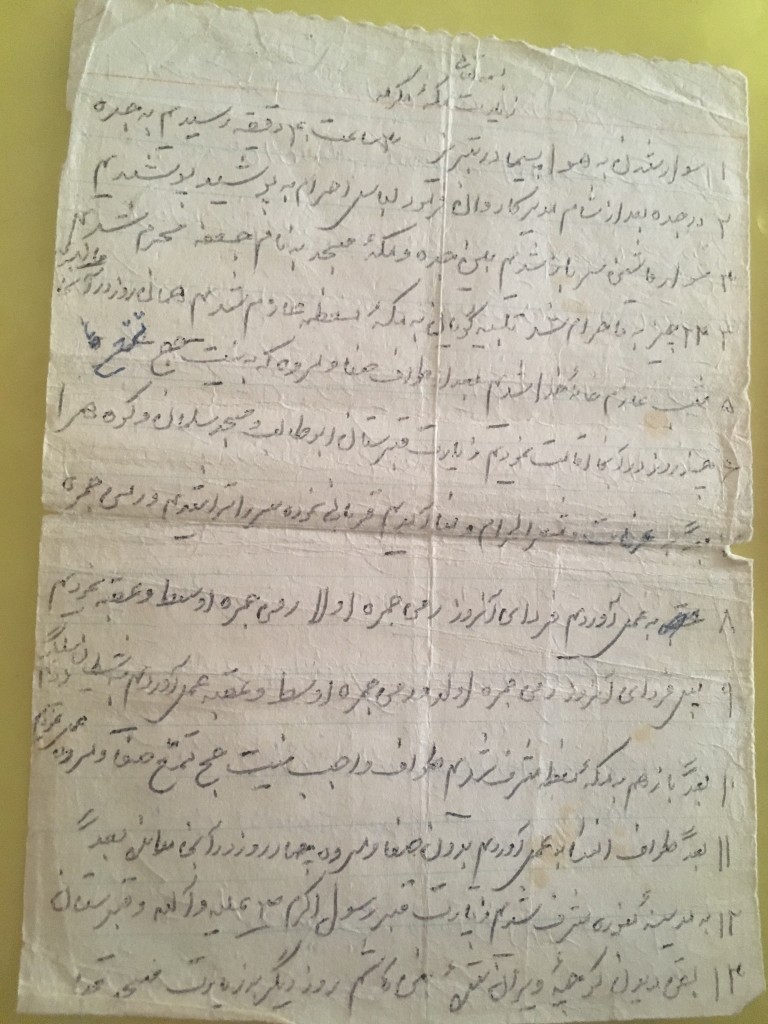 زیارت مکهٔ مکرمه
۱ سوار شدن به هوا پیما در تبریز ۳ ساعت ۴۰ دقیقه رسیدیم به جده
۲ در جده بعد از شام مدیر کاروان فرمود لباس احرام به پوشید پوشیدیم
۳ سوار ماشین سر باز شدیم بین جده و مکهٔ مسجد به نام جحفه محرم شدیم
۴ ۲۴ چیز به ما حرام شد تلبیه گویان به مکهٔ معظمه عازم شدیم همان روز در
۵ شب عازم خانهٔ خدا شدیم بعد از طواف صفا و مروه که به نیت حج تمتع
۶ چند روز در آنجا اقامت نمودیم زیارت قبرستان ابوطالب و مسجد سلمان و کوه حرا
بعداً به عرفات و مشعر الحرام و منا رفتیم قربانی نموده سر را تراشیدیم و رمی جمره
۸ به عمل آوردیم فردای آنروز رمی جمره اولا رمی جمره اوسط و عقبه نمودیم
۹ پس فردای آنروز رمی جمره اولا و رمی جمره اوسط و عقبه عمل آوردیم
۱۰ بعداً باز هم به مکهٔ معظمه مشرف شدیم طواف واجب به نیت حج تمتع صفا و مروه
۱۱ بعداً طواف النساء به عمل آوردیم بدون صفا و مروه چهار روز در آنجا ماندن بعداً
۱۲ به مدینهٔ منوره مشرف شدیم زیارت قبر رسول اکرم ص علیه و آله و قبرستان
۱۳ بقیع ویران روز دیگر